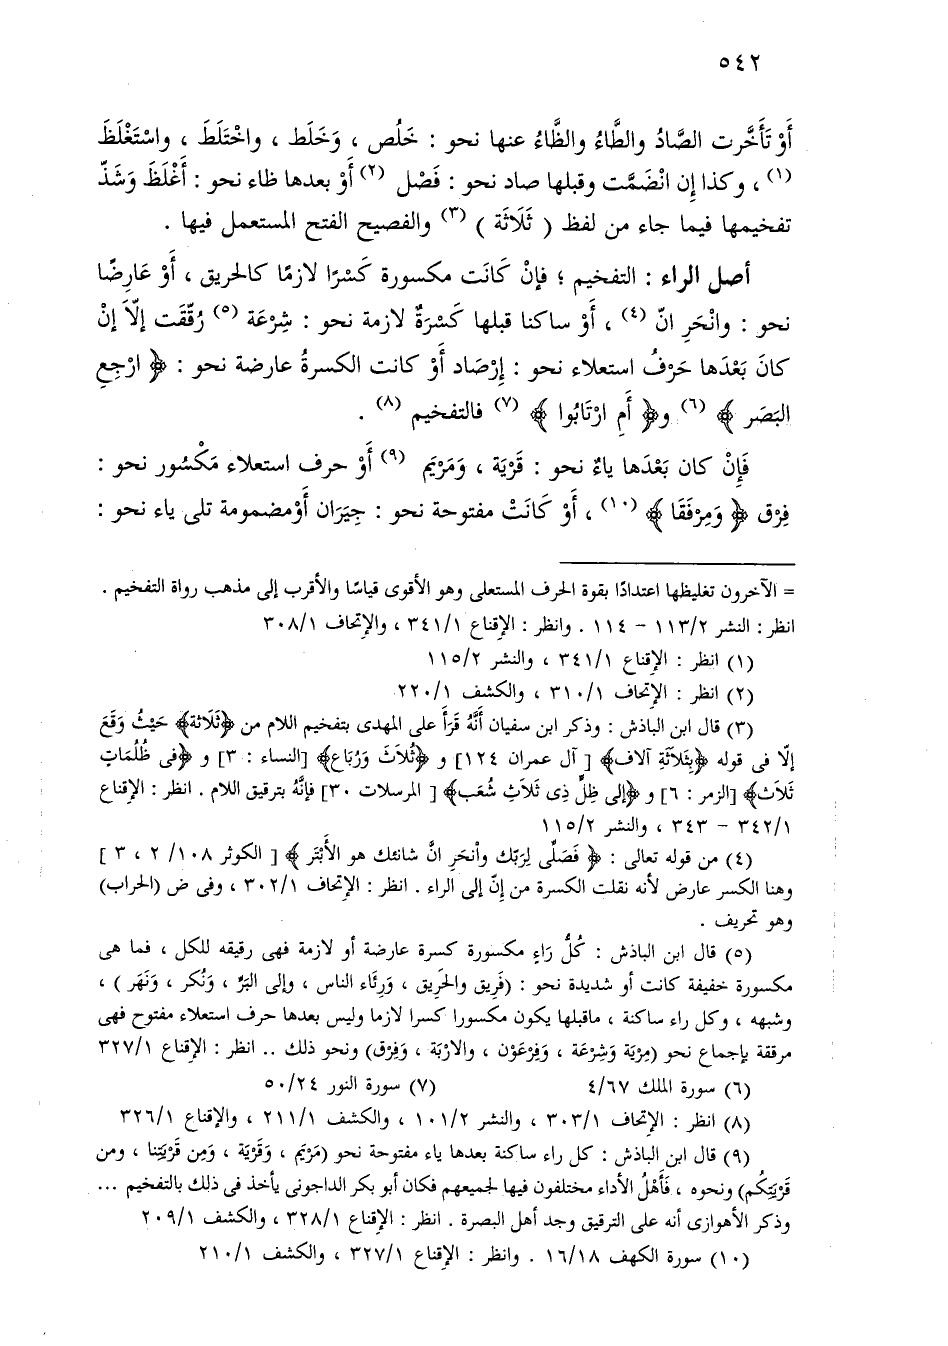 ٥٤٢
أَوْ تَأَخَّرت الصَّادُ والطَّاءُ والظَّاءُ عنها نحو : خَلُص ، وَخَلَط ، واخْتَلَطَ ، واسْتَغْلَظَ
(١) ، وكذا إِن انْضَمَّت وقبلها صاد نحو : فَصْل (٢) أَوْ بعدها ظاء نحو : أَغْلَظَ وَشَذّ
تفخيمها فيما جاء من لفظ ( ثَلَاثَة ) (٣) والفصيح الفتح المستعمل فيها .
أصل الراء : التفخيم ؛ فإنْ كَانَت مكسورة كَسْرًا لازمًا كالحريق ، أَوْ عَارِضًا
نحو : وانْحَرِ انّ (٤) ، أَوْ ساكنا قبلها كَسْرَةٌ لازمة نحو : شِرْعَة (٥) رُقّقَت إلّا إنْ
كانَ بَعْدَها حَرْفُ استعلاء نحو : إرْصَاد أَوْ كانت الكسرةُ عارضة نحو : ﴿ ارْجِعِ
البَصَر ﴾ (٦) و﴿ أَمِ ارْتَابُوا ﴾ (٧) فالتفخيم (٨) .
فَإِنْ كان بَعْدَها ياءٌ نحو : قَرْيَة ، وَمَرْيَم (٩) أَوْ حرف استعلاء مَكْسُور نحو :
فِرْق ﴿ وَمِرْفَقَا ﴾ (١٠) ، أَوْ كَانَتْ مفتوحة نحو : جِيَرَان أَوْمضمومة تلى ياء نحو :
= الآخرون تغليظها اعتدادًا بقوة الحرف المستعلى وهو الأقوى قياسًا والأقرب إلى مذهب رواة التفخيم .
انظر : النشر ١١٣/٢ – ١١٤ . وانظر : الإقناع ٣٤١/١ ، والإتحاف ٣٠٨/١
(١) انظر : الإقناع ٣٤١/١ ، والنشر ١١٥/٢
(٢) انظر : الإتحاف ٣١٠/١ ، والكشف ٢٢٠/١
(٣) قال ابن الباذش : وذكر ابن سفيان أَنَّهُ قَرَأَ على المهدى بتفخيم اللام من ﴿ثَلَاثة﴾ حَيْثُ وَقَعَ
إلّا فى قوله ﴿بِثَلَاثَةِ آلاف﴾ [ آل عمران ١٢٤] و ﴿ثُلَاثَ وَرُبَاع﴾ [النساء : ٣] و ﴿فى ظُلُمَاتٍ
ثَلَاث﴾ [الزمر : ٦] و ﴿إلى ظِلٍّ ذِى ثَلَاثِ شُعَب﴾ [ المرسلات ٣٠] فإنَّهُ بترقيق اللام . انظر : الإقناع
٣٤٢/١ – ٣٤٣ ، والنشر ١١٥/٢
(٤) من قوله تعالى : ﴿ فَصَلِّى لِرَبّك وأنحَرِ انَّ شانئك هو الأبْتَر ﴾ [ الكوثر ١٠٨/ ٢ ، ٣ ]
وهنا الكسر عارض لأنه نقلت الكسرة من إنّ إلى الراء . انظر : الإتحاف ٣٠٢/١ ، وفى ض (الحراب)
وهو تحريف .
(٥) قال ابن الباذش : كُلُّ رَاءٍ مكسورة كسرة عارضة أو لازمة فهى رقيقه للكل ، فما هى
مكسورة خفيفة كانت أو شديدة نحو : (فَرِيق والحَرِيق ، وَرِئَاء الناس ، وإلى البَرِّ ، وَنُكر ، وَنَهَر ) ،
وشبهه ، وكل راء ساكنة ، ماقبلها يكون مكسورا كسرا لازما وليس بعدها حرف استعلاء مفتوح فهى
مرققة بإجماع نحو (مِرْيَة وَشِرْعَة ، وَفِرْعَوْن ، والارْبَة ، وَفِرْق) ونحو ذلك .. انظر : الإقناع ٣٢٧/١
(٦) سورة الملك ٤/٦٧ (٧) سورة النور ٥٠/٢٤
(٨) انظر : الإتحاف ٣٠٣/١ ، والنشر ١٠١/٢ ، والكشف ٢١١/١ ، والإقناع ٣٢٦/١
(٩) قال ابن الباذش : كل راء ساكنة بعدها ياء مفتوحة نحو (مَرْيَم ، وَقَرْيَة ، وَمِن قَرْيَتِنا ، ومن
قَرْيَتِكُم) ونحوه ، فَأَهْلُ الأداء مختلفون فيها لجميعهم فكان أبو بكر الداجونى يأخذ فى ذلك بالتفخيم ...
وذكر الأهوازى أنه على الترقيق وجد أهل البصرة . انظر : الإقناع ٣٢٨/١ ، والكشف ٢٠٩/١
(١٠) سورة الكهف ١٦/١٨ . وانظر : الإقناع ٣٢٧/١ ، والكشف ٢١٠/١